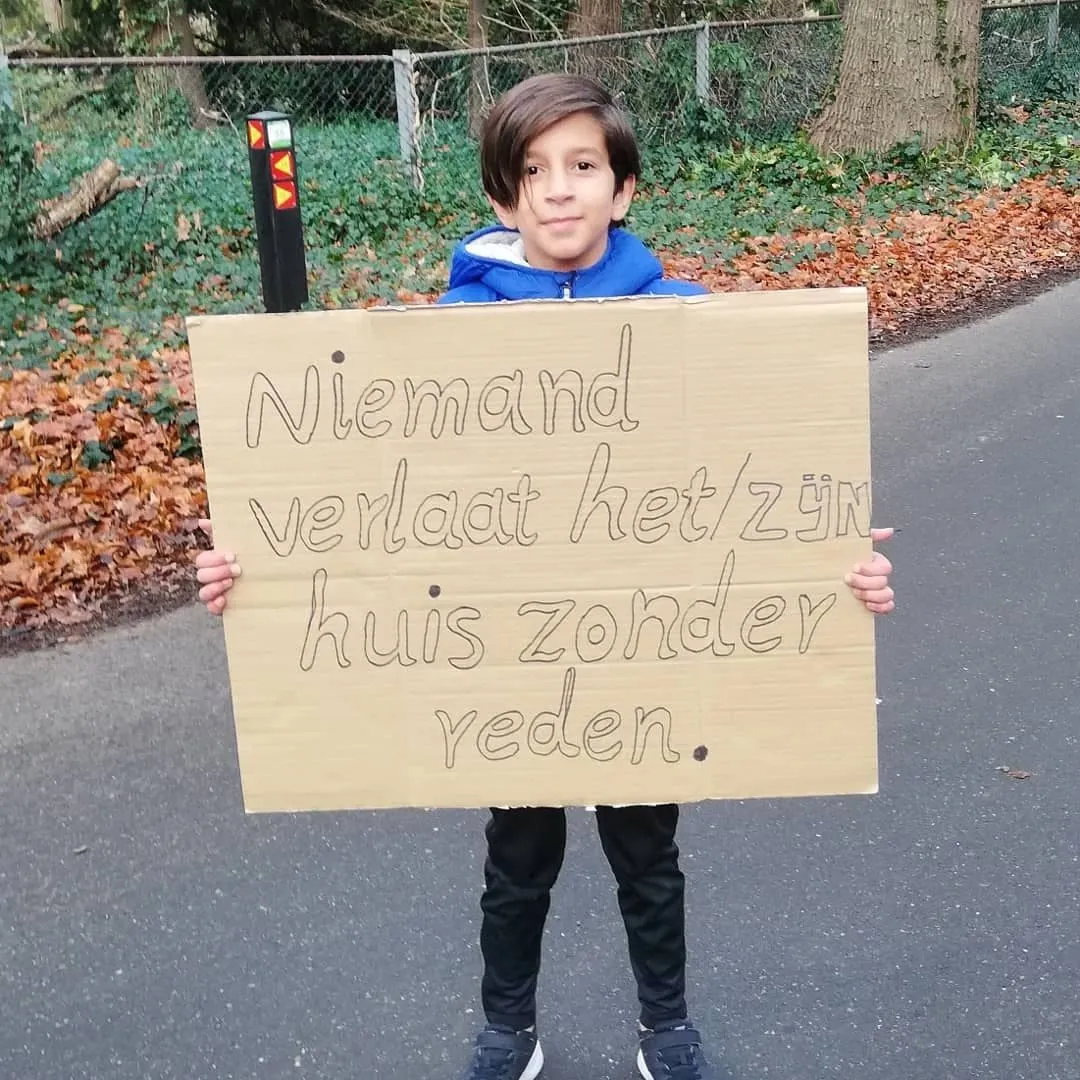 Niemand
verlaat het/zijn
huis zonder
reden.